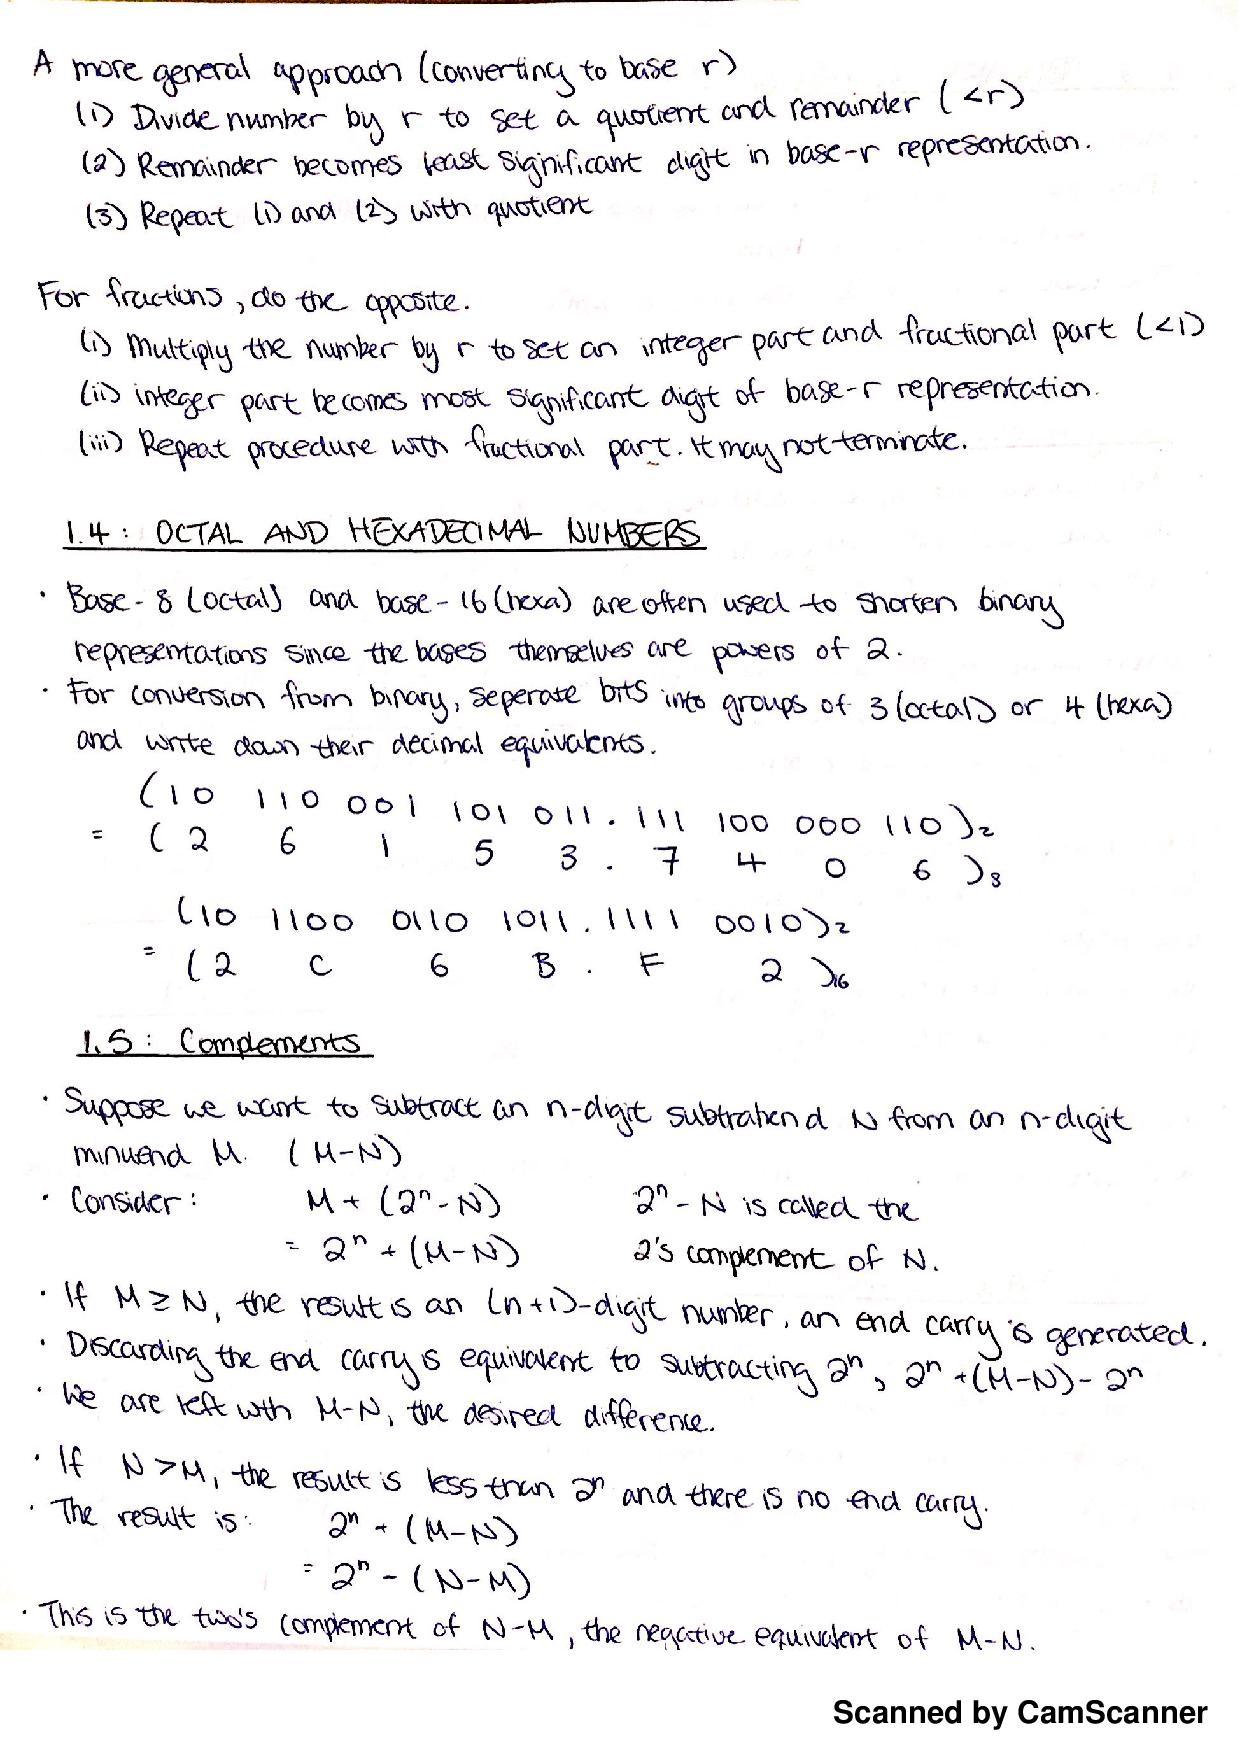 A more general approach (converting to base r)
(1) Divide number by r to set a quotient and remainder (<r)
(2) Remainder becomes least significant digit in base-r representation.
(3) Repeat (1) and (2) with quotient
For fractions, do the opposite.
(i) Multiply the number by r to set an integer part and fractional part (<1)
(ii) integer part becomes most significant digit of base-r representation.
(iii) Repeat procedure with fractional part. It may not terminate.
1.4: OCTAL AND HEXADECIMAL NUMBERS
· Base-8 (octal) and base-16 (hexa) are often used to shorten binary
representations since the bases themselves are powers of 2.
· For conversion from binary, seperate bits into groups of 3 (octal) or 4 (hexa)
and write down their decimal equivalents.
(10 110 001 101 011 . 111 100 000 110)₂
= (2 6 1 5 3 . 7 4 0 6)₈
(10 1100 0110 1011 . 1111 0010)₂
= (2 C 6 B . F 2)₁₆
1.5: Complements
· Suppose we want to subtract an n-digit subtrahend N from an n-digit
minuend M. (M-N)
· Consider: M + (2ⁿ - N) 2ⁿ - N is called the
= 2ⁿ + (M-N) 2's complement of N.
· If M ≥ N, the result is an (n+1)-digit number, an end carry is generated.
· Discarding the end carry is equivalent to subtracting 2ⁿ, 2ⁿ + (M-N) - 2ⁿ
· We are left with M-N, the desired difference.
· If N > M, the result is less than 2ⁿ and there is no end carry.
· The result is: 2ⁿ + (M-N)
= 2ⁿ - (N-M)
· This is the two's complement of N-M, the negative equivalent of M-N.
Scanned by CamScanner